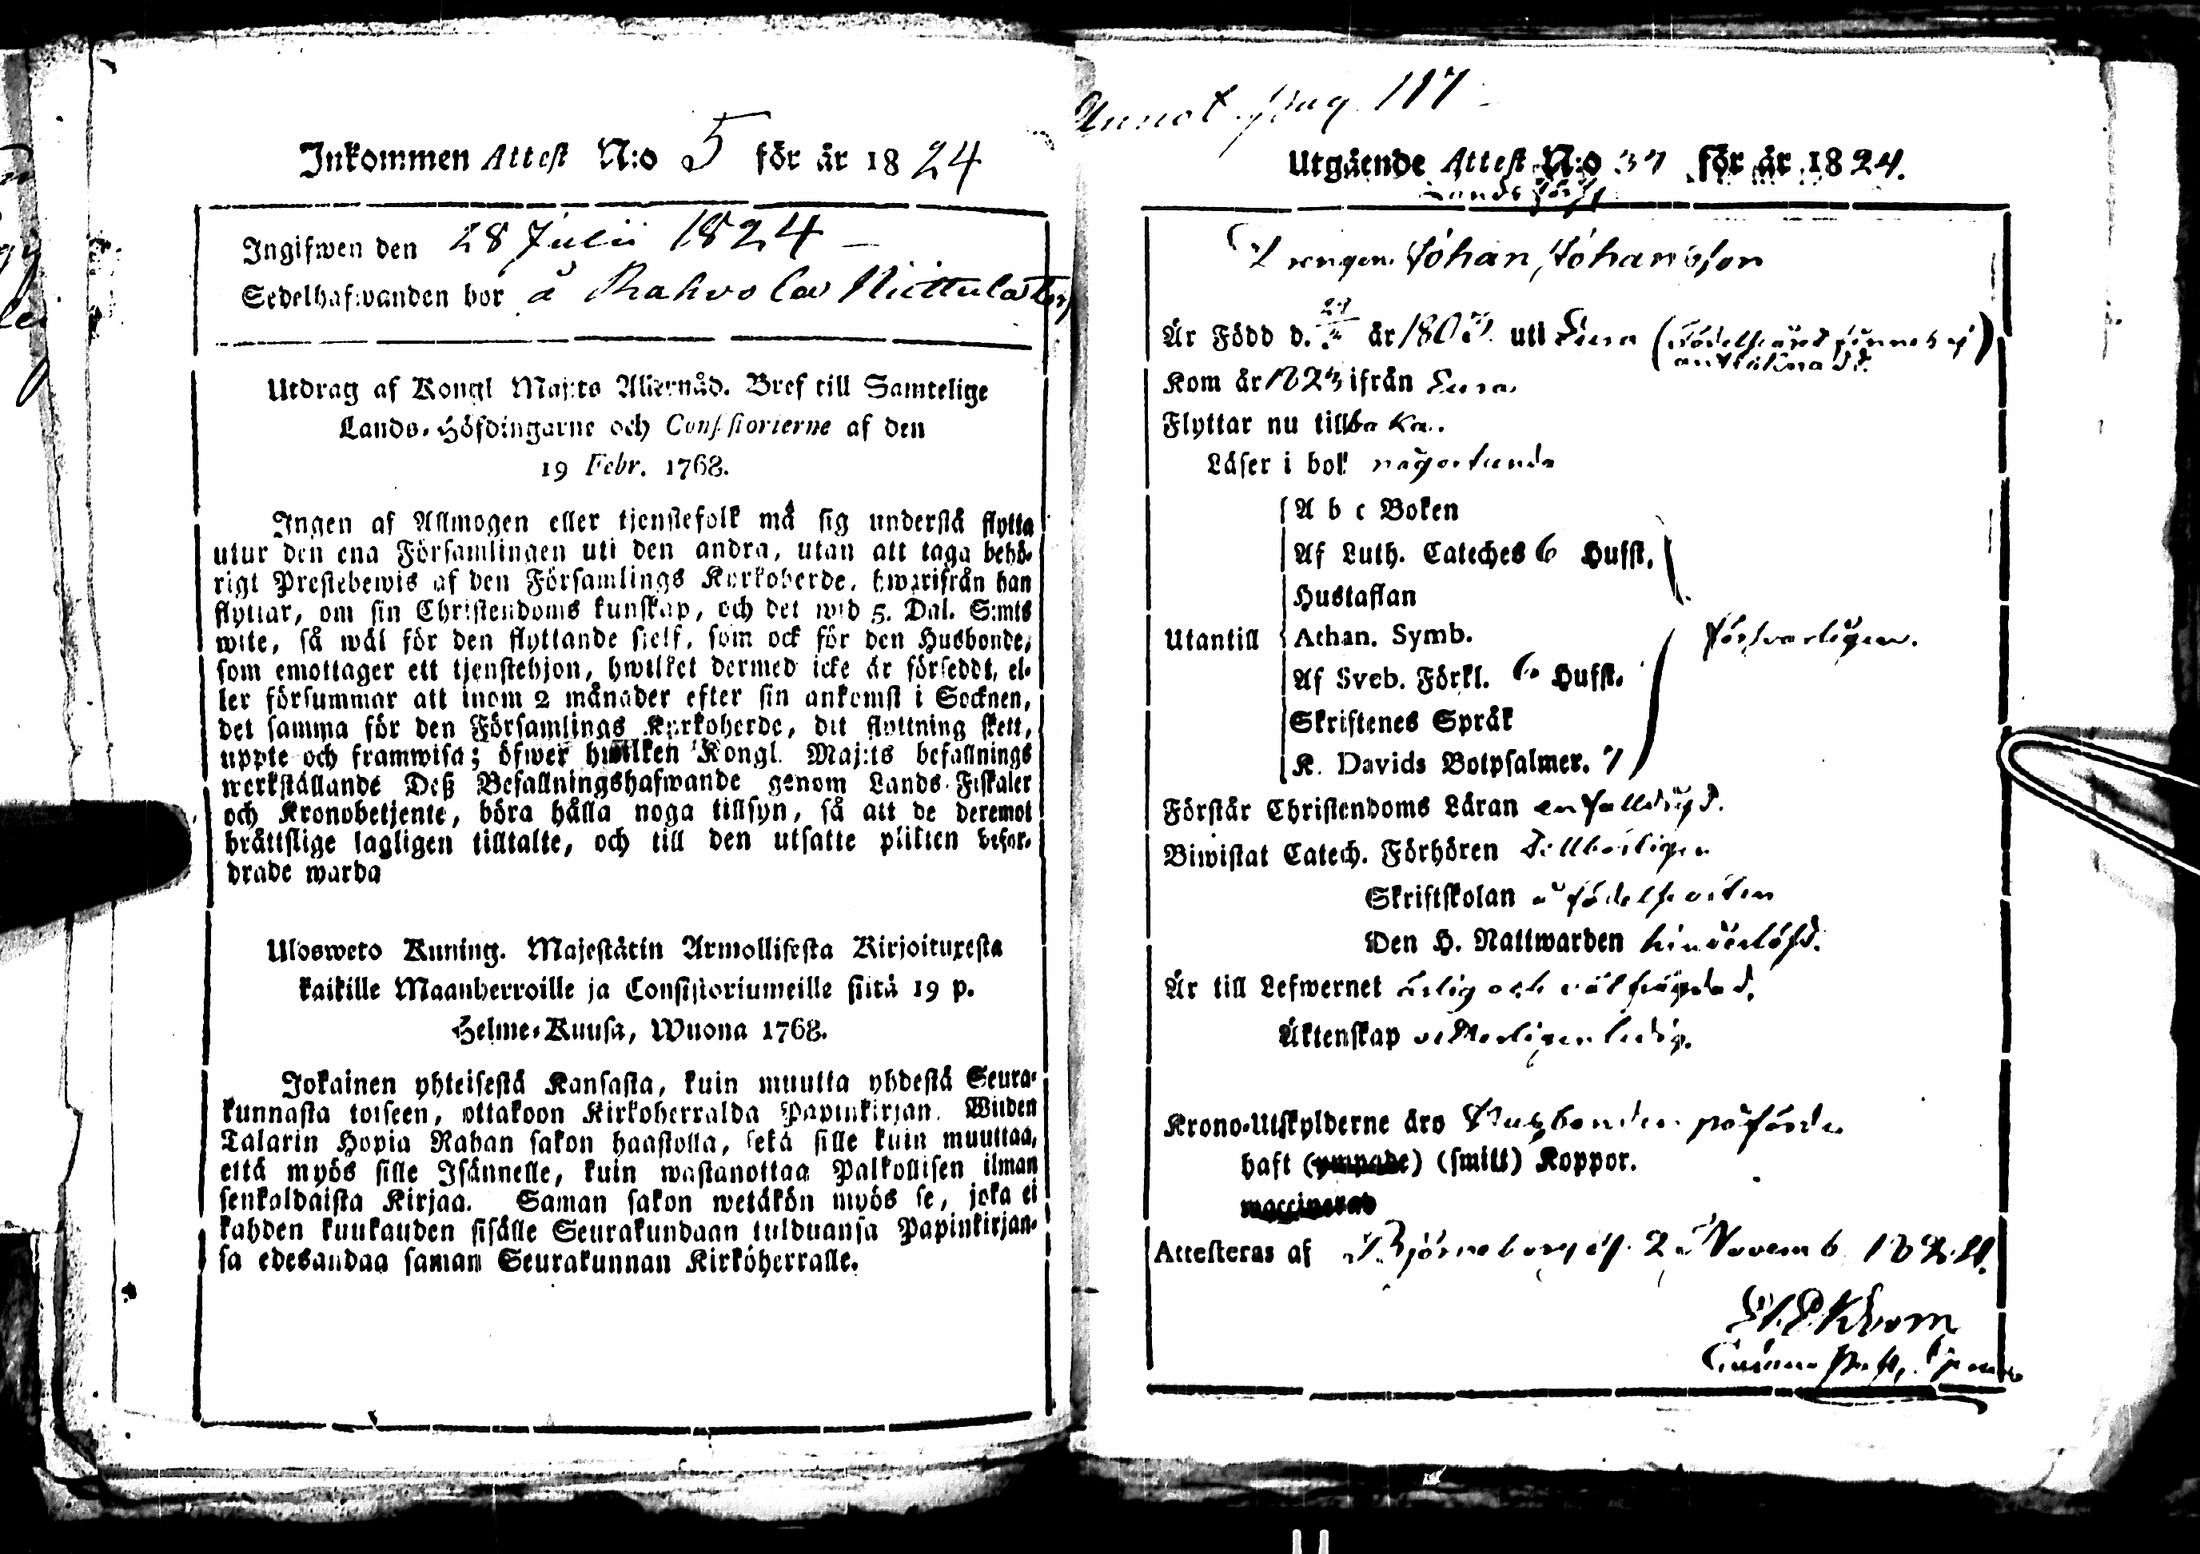 Inkommen Attest N:o 5 för år 1824
Ingifwen den 28 Julii 1824 —
Sedelhafwanden bor å Rahvola Niettula
Utdrag af Kongl Maj:ts Allernåd. Bref till Samtelige
Lands-Höfdingarne och Consistorierne af den
19 Febr. 1768.
Ingen af Allmogen eller tjenstefolk må sig understå flytta
utur den ena Församlingen uti den andra, utan att taga behö-
rigt Prestebewis af den Församlings Kyrkoherde, hwarifrån han
flyttar, om sin Christendoms kunskap, och det wid 5. Dal. S:mts
wite, så wäl för den flyttande sielf, som ock för den Husbonde,
som emottager ett tjenstehjon, hwilket dermed icke är försedt, el-
ler försummar att inom 2 månader efter sin ankomst i Socknen,
det samma för den Församlings Kyrkoherde, dit flyttning skett,
uppte och framwisa; öfwer hwilken Kongl. Maj:ts befallnings
werkställande Deß Befallningshafwande genom Lands-Fiskaler
och Kronobetjente, böra hålla noga tillsyn, så att de deremot
brättslige lagligen tilltalte, och till den utsatte plikten befor-
drade warda
Ulosweto Kuning. Majestätin Armollisesta Kirjoituxesta
kaikille Maanherroille ja Consistoriumeille siitä 19 p.
Helme-Kuusa, Wuona 1768.
Jokainen yhteisestä Kansasta, kuin muutta yhdestä Seura-
kunnasta toiseen, ottakoon Kirkoherralda Papinkirjan. Wiiden
Talarin Hopia Rahan sakon haastolla, sekä sille kuin muuttaa,
että myös sille Isännelle, kuin wastanottaa Palkollisen ilman
senkaldaista Kirjaa. Saman sakon wetäkön myös se, joka ei
kahden kuukauden sisälle Seurakundaan tulduansa Papinkirjan-
sa edesandaa saman Seurakunnan Kirköherralle.
Annot. pag 117
Utgående Attest N:o 37 för år 1824.
Drengen Johan Johansson
Är Född d. år 1803 uti Eura (
Kom år 1823 ifrån Eura.
Flyttar nu tillbaka.
Läser i bok någorlunda
A b c Boken
Af Luth. Cateches 6 Hufst.
Hustaflan
Utantill Athan. Symb. försvarligen.
Af Sveb. Förkl. 6 Hufst.
Skriftenes Språk
K. Davids Botpsalmer. 7
Förstår Christendoms Läran enfalldigt.
Biwistat Catech. Förhören
Skriftskolan å födelseorten
Den H. Nattwarden
Är till Lefwernet ärlig och välfrägdad.
Äktenskap veterligen ledig.
Krono-Utskylderne äro Husbonden påförde
haft (ympade) (smitt) Koppor.
waccinerad
Attesteras af Björneborg d. 2 Novemb 1824.